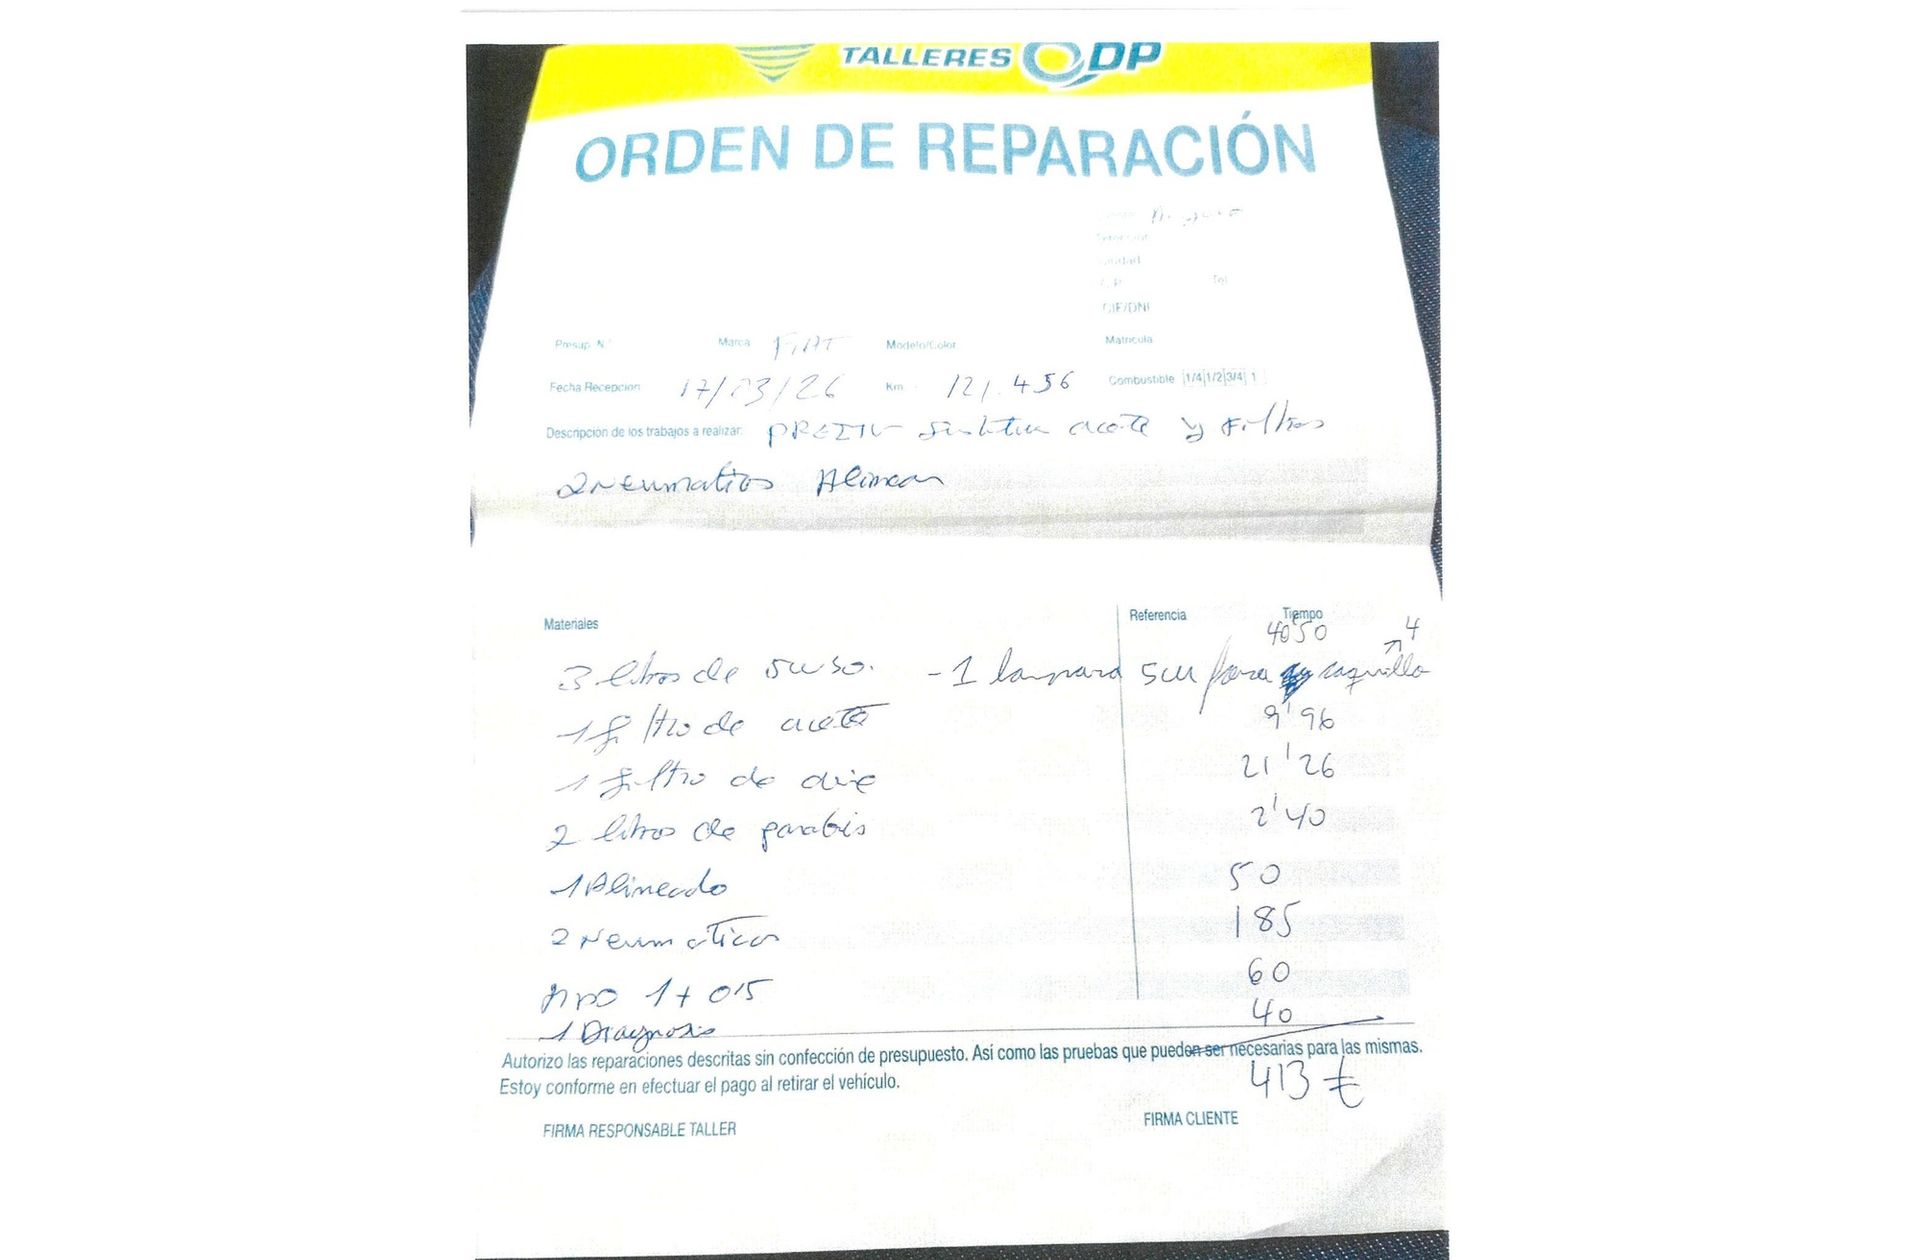 TALLERES DP
ORDEN DE REPARACIÓN
CIF/DNI
Tel
Presup. N.º Marca FIAT Modelo/Color Matricula
Fecha Recepcion 17/03/26 Km. 121.456 Combustible 1/4 1/2 3/4 1
Descripción de los trabajos a realizar: aceite y Filtros
2 Neumaticos Alinear
Materiales Referencia Tiempo
40'50 4
3 litros de 5w30. - 1 lampara 5w para casquillo
1 filtro de aceite 9'96
1 filtro de aire 21'26
2 litros de parabis 2'40
1 Alineado 50
2 Neumaticos 185
1 + 0'15 60
1 Diagnosis 40
Autorizo las reparaciones descritas sin confección de presupuesto. Así como las pruebas que pueden ser necesarias para las mismas.
Estoy conforme en efectuar el pago al retirar el vehículo.
413 €
FIRMA RESPONSABLE TALLER FIRMA CLIENTE